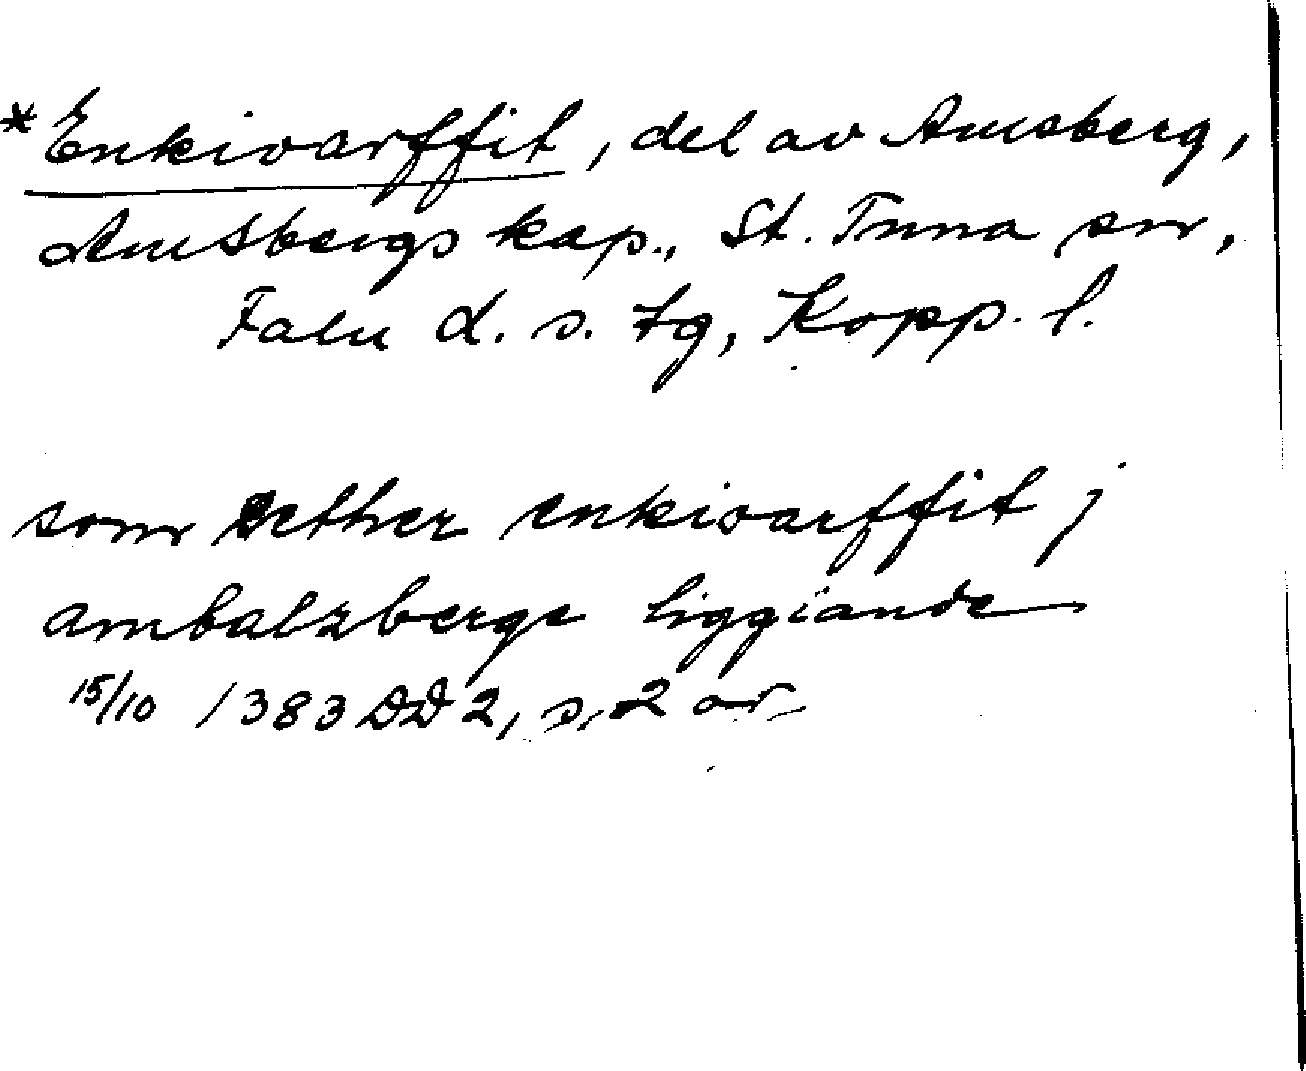 *Enkivarffit, del av Amsberg,
Amsbergs kap., St. Tuna sn,
Falu d. s. tg, Kopp. l.
som hether enkivarffit j
ambalzberge liggiande
15/10 1383 DD 2, s. 2 or.